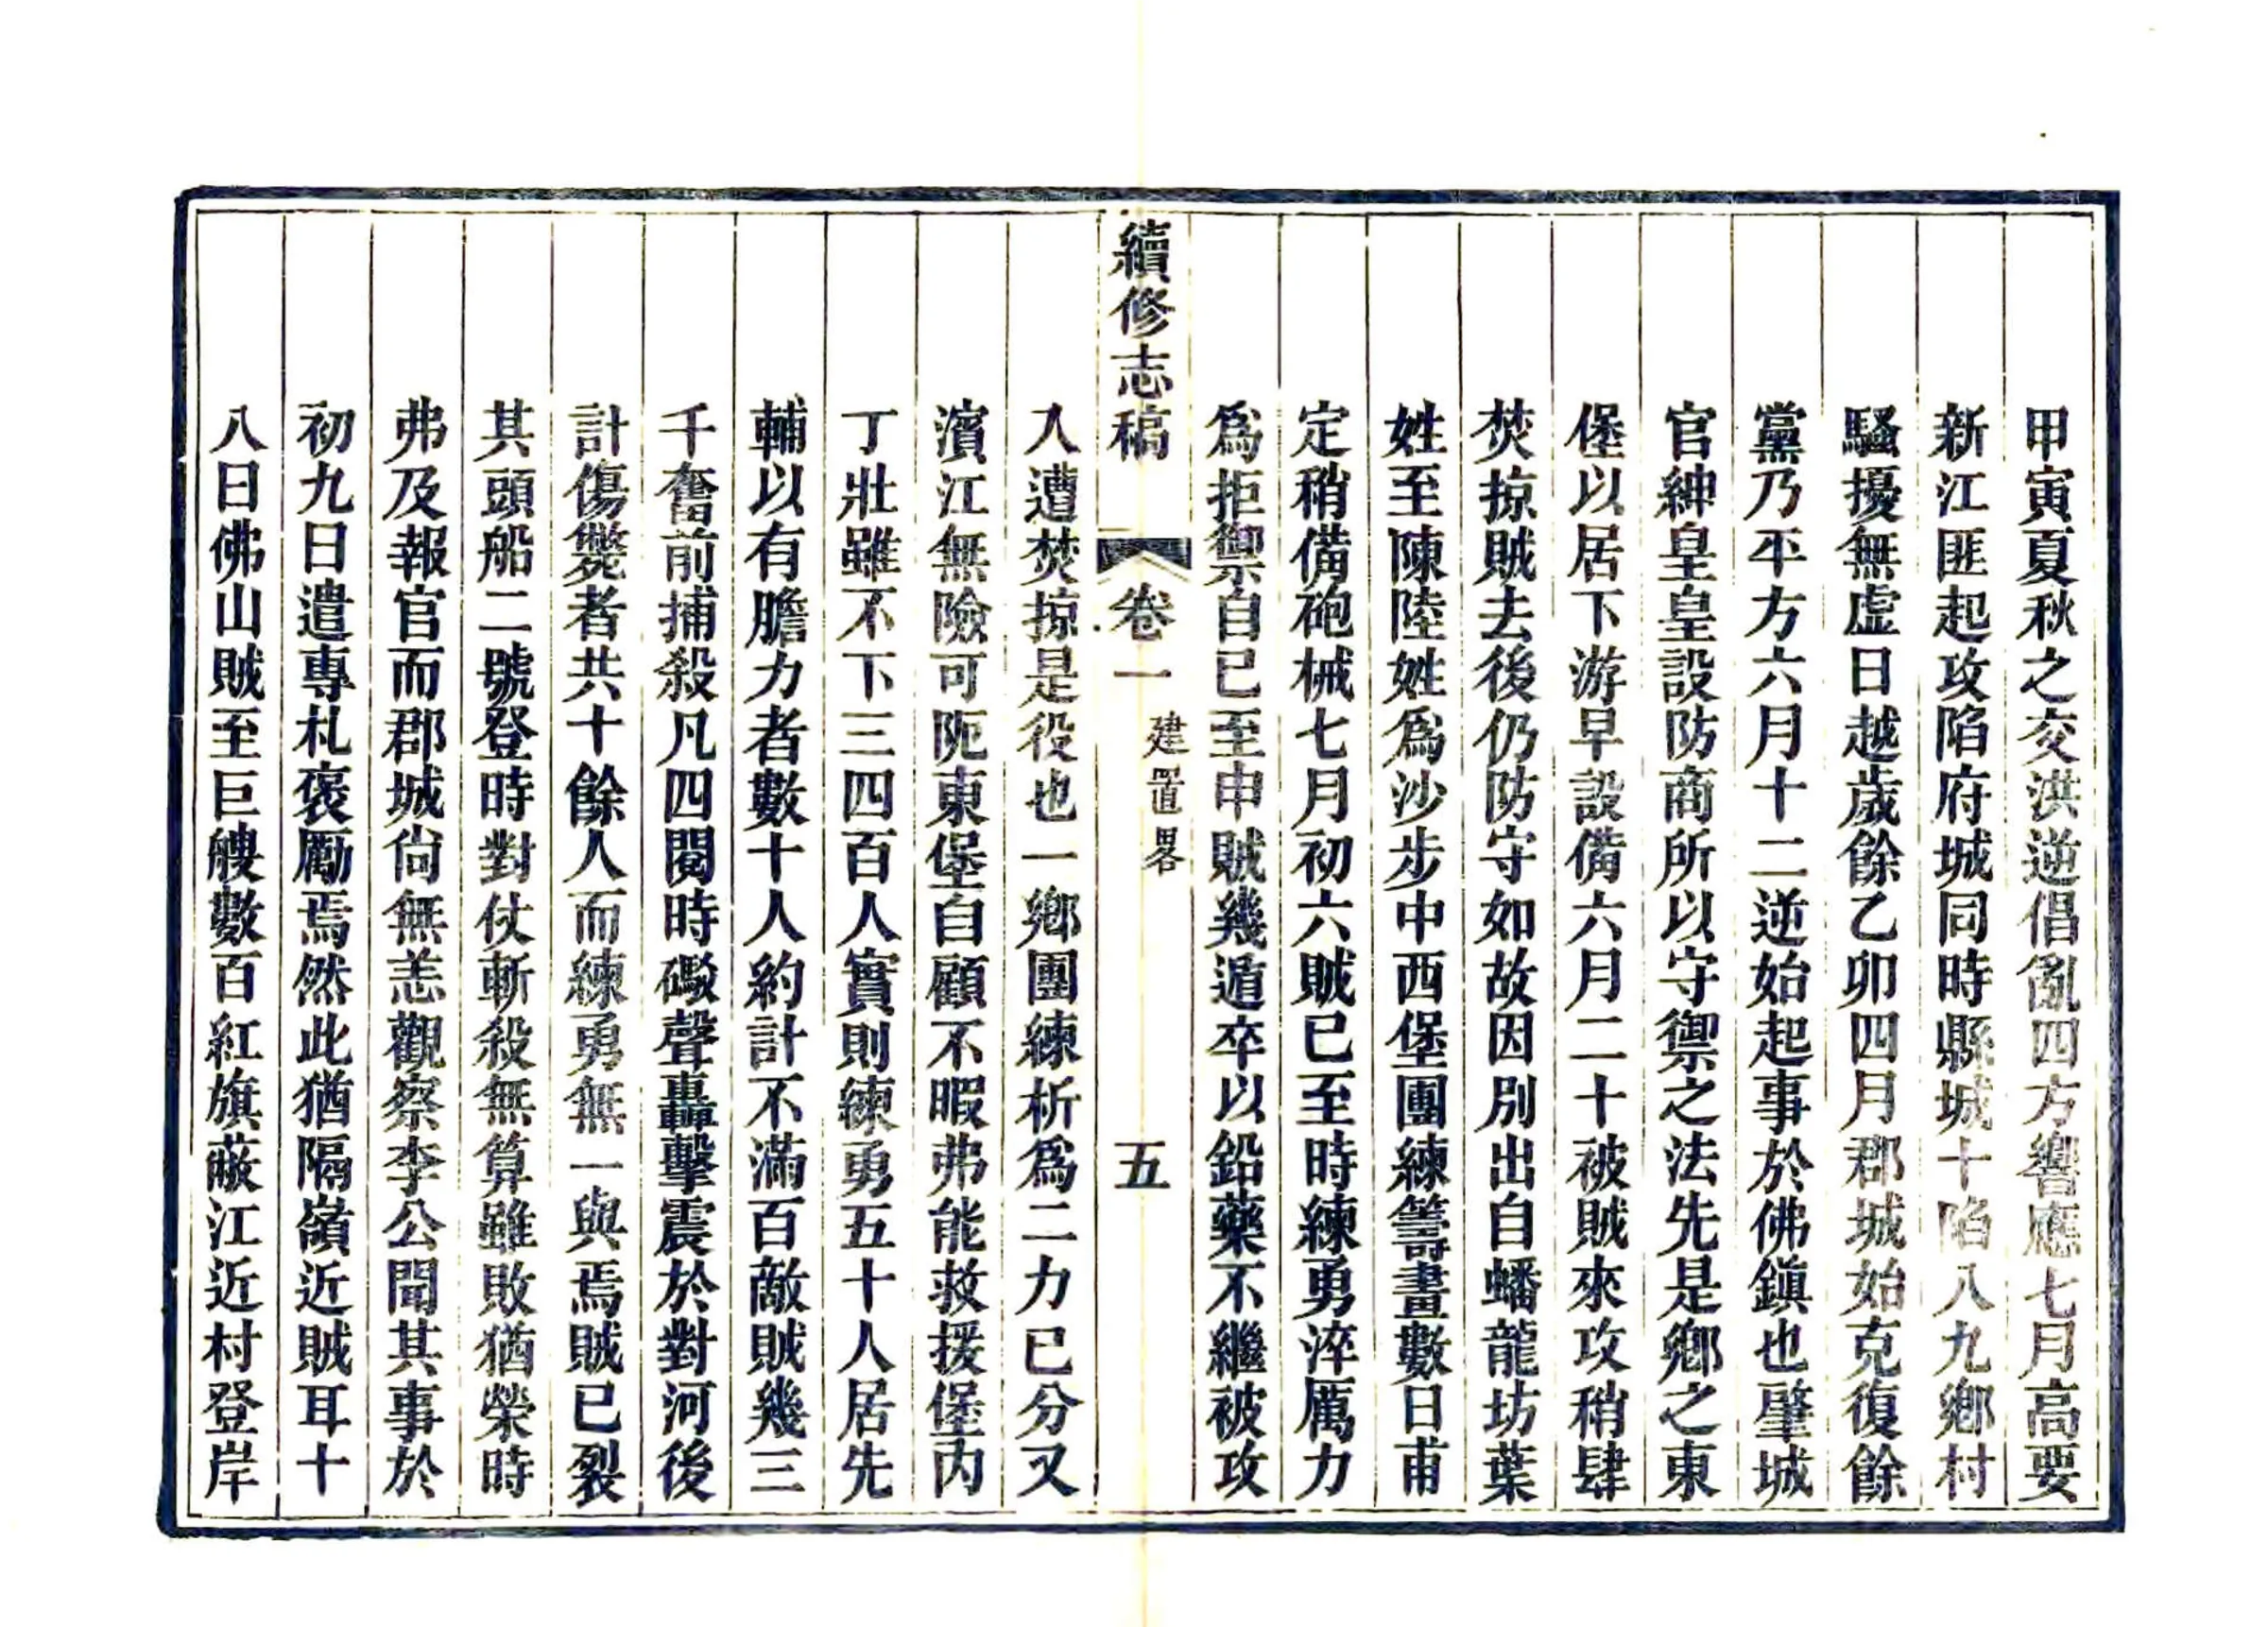 甲寅夏秋之交洪逆倡亂四方響應七月高要
新江匪起攻陷府城同時縣城十陷八九鄉村
騷擾無虛日越歲餘乙卯四月郡城始克復餘
黨乃平方六月十二逆始起事於佛鎭也肇城
官紳皇皇設防商所以守禦之法先是鄉之東
堡以居下游早設備六月二十被賊來攻稍肆
焚掠賊去後仍防守如故因別出自蟠龍坊葉
姓至陳陸姓爲沙步中西堡團練籌畫數日甫
定稍備砲械七月初六賊已至時練勇淬厲力
爲拒禦自已至申賊幾遁卒以鉛藥不繼被攻
續修志稿 卷一 建置畧 五
入遭焚掠是役也一鄉團練析爲二力已分又
濱江無險可阨東堡自顧不暇弗能救援堡內
丁壯雖不下三四百人實則練勇五十人居先
輔以有膽力者數十人約計不滿百敵賊幾三
千奮前捕殺凡四閱時礮聲轟擊震於對河後
計傷斃者共十餘人而練勇無一與焉賊已裂
其頭船二號登時對仗斬殺無算雖敗猶榮時
弗及報官而郡城尙無恙觀察李公聞其事於
初九日遣專札褒勵焉然此猶隔嶺近賊耳十
八日佛山賊至巨艘數百紅旗蔽江近村登岸